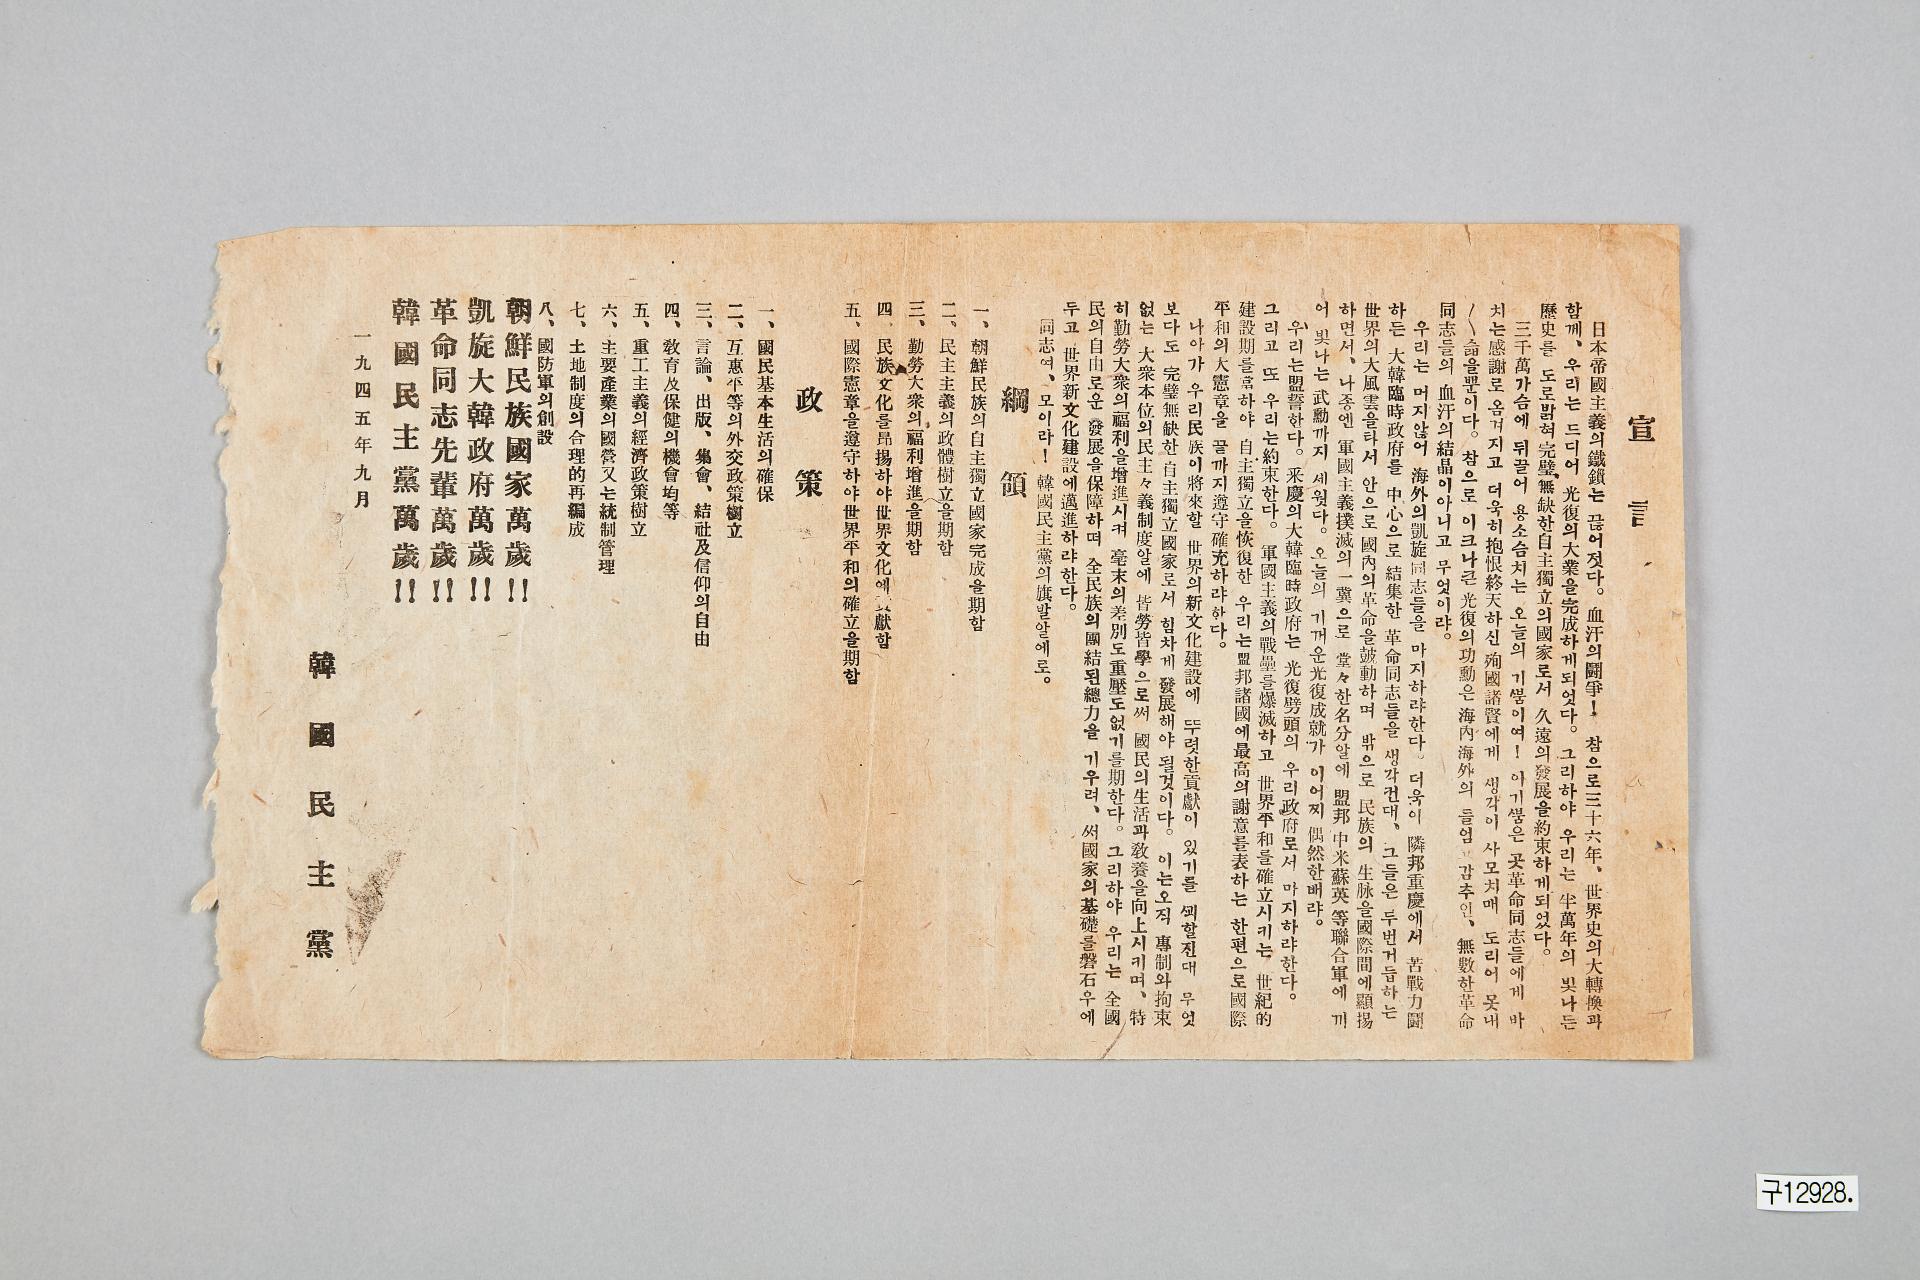 宣言
日本帝國主義의鐵鎖는 끊어젓다。血汗의鬪爭! 참으로三十六年、世界史의大轉換과
함께、우리는 드디어 光復의大業을完成하게되엇다。그리하야 우리는 半萬年의 빛나는
歷史를 도로밝혀 完璧無缺한自主獨立의國家로서 久遠의發展을約束하게되었다。
三千萬가슴에 뒤끌어 용소슴치는 오늘의 기쁨이여! 아기쁨은 곳革命同志들에게 바
치는感謝로 옴겨지고 더욱히抱恨終天하신 殉國諸賢에게 생각이 사모치매 도리어 못내
슲을뿐이다。참으로 이크나큰 光復의功勳은 海內海外의 들엄 감추인、無數한革命
同志들의 血汗의結晶이아니고 무엇이랴。
우리는 머지않어 海外의凱旋同志들을 마지하랴한다。더욱이 隣邦重慶에서 苦戰力鬪
하든 大韓臨時政府를 中心으로 結集한 革命同志들을 생각건대、그들은 두번거듭하는
世界의大風雲을타서 안으로 國內의革命을鼓動하며 밖으로 民族의 生脉을國際間에顯揚
하면서、나종엔 軍國主義撲滅의 一翼으로 堂々한名分알에 盟邦 中米蘇英 等聯合軍에 끼
어 빛나는 武勳까지 세웟다。오늘의 기꺼운光復成就가 이어찌 偶然한배랴。
우리는盟誓한다。釆慶의大韓臨時政府는 光復劈頭의 우리政府로서 마지하랴한다。
그리고 또 우리는約束한다。軍國主義의戰壘를爆滅하고 世界平和를確立시키는 世紀的
建設期를當하야 自主獨立을恢復한 우리는盟邦諸國에最高의謝意를表하는 한편으로國際
平和의大憲章을 끝까지遵守確充하랴한다。
나아가 우리民族이將來할 世界의新文化建設에 뚜렷한貢獻이 있기를 꾀할진대 무엇
보다도 完璧無缺한 自主獨立國家로서 힘차게 發展해야 될것이다。이는오직 專制와拘束
없는 大衆本位의民主々義制度알에 皆勞皆學으로써 國民의生活과敎養을向上시키며、特
히勤勞大衆의福利을增進시켜 毫末의差別도重壓도없기를期한다。그리하야 우리는 全國
民의自由로운 發展을保障하며 全民族의團結된總力을 기우려、써國家의基礎를磐石우에
두고 世界新文化建設에邁進하랴한다。
同志여、모이라! 韓國民主黨의旗발알에로。
綱領
一、朝鮮民族의自主獨立國家完成을期함
二、民主主義의政體樹立을期함
三、勤勞大衆의福利增進을期함
四、民族文化를昂揚하야世界文化에 獻함
五、國際憲章을遵守하야世界平和의確立을期함
政策
一、國民基本生活의確保
二、互惠平等의外交政策樹立
三、言論、出版、集會、結社及信仰의自由
四、敎育及保健의機會均等
五、重工主義의經濟政策樹立
六、主要産業의國營又는統制管理
七、土地制度의合理的再編成
八、國防軍의創設
朝鮮民族國家萬歲!!
凱旋大韓政府萬歲!!
革命同志先輩萬歲!!
韓國民主黨萬歲!!
一九四五年九月
韓國民主黨
구12928.